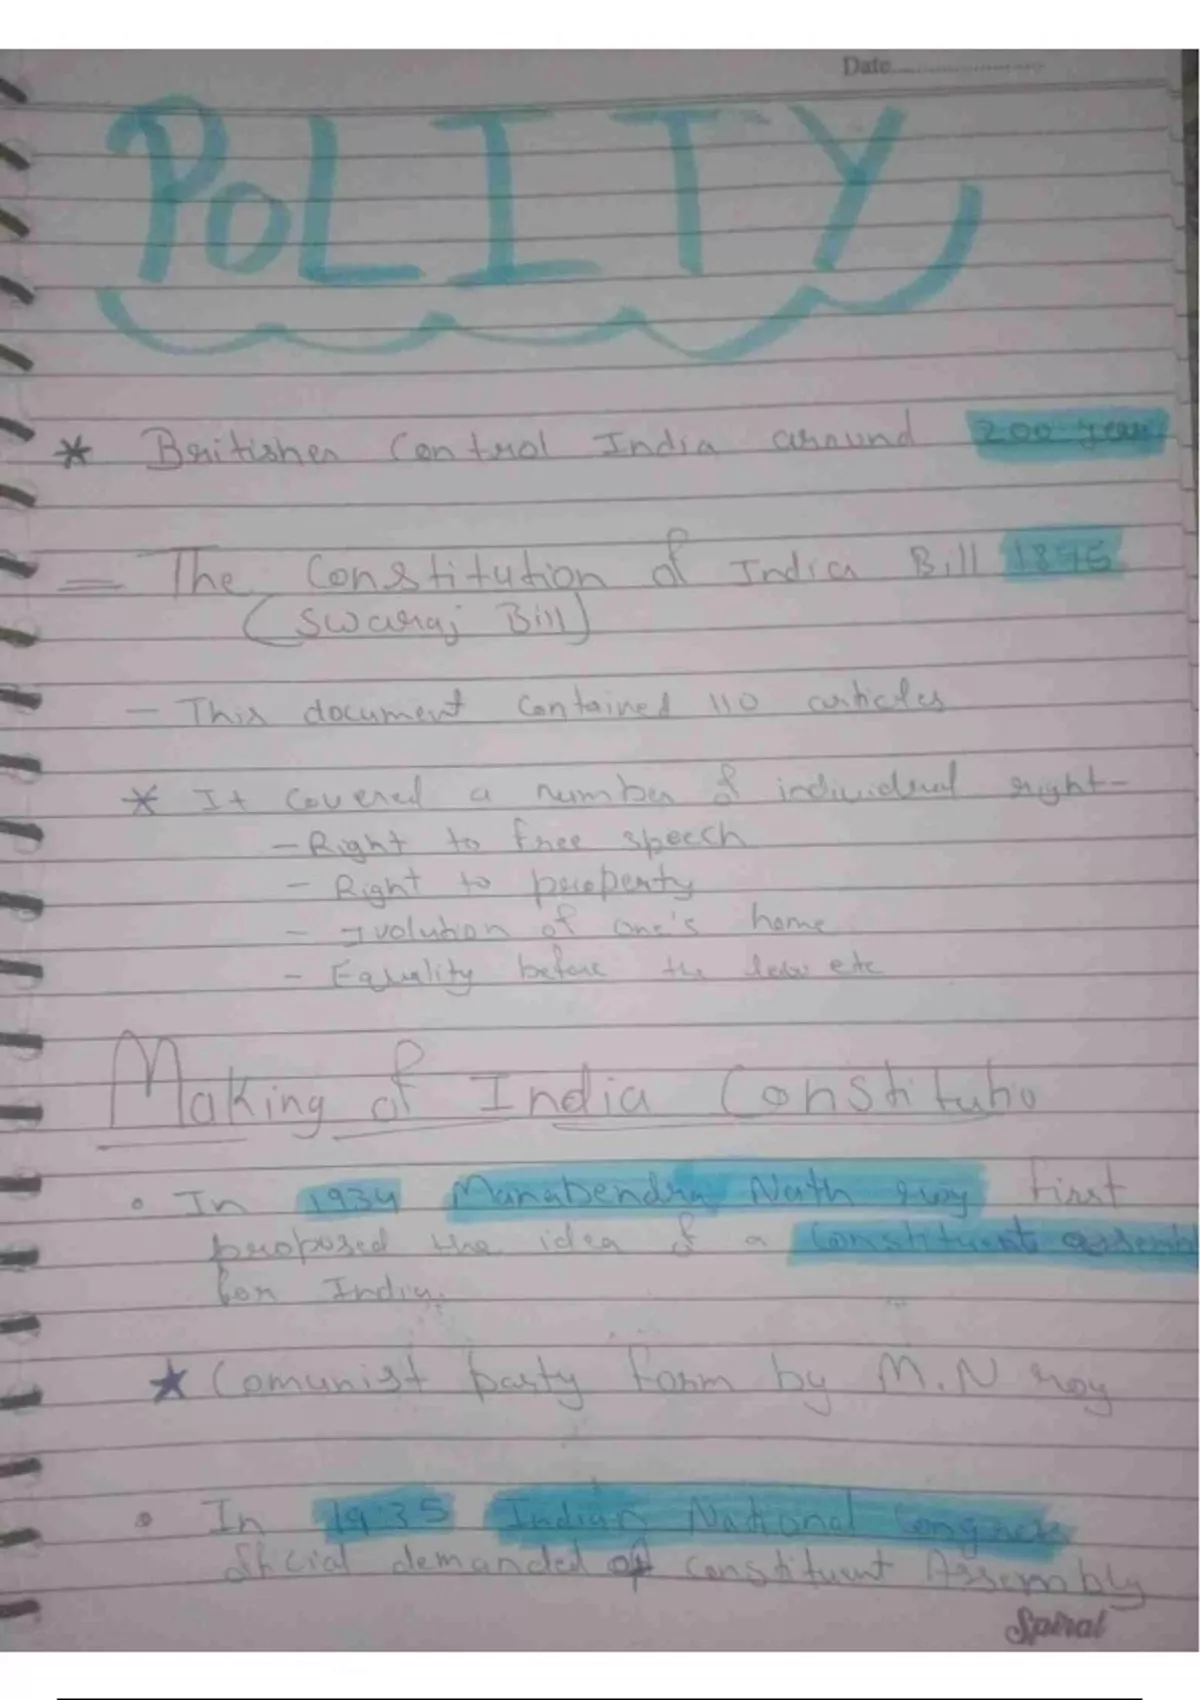 Date
POLITY
* Britisher Control India around 200 year
= The Constitution of India Bill 1895
(Swaraj Bill)
- This document contained 110 articles
* It covered a number of individual right-
- Right to free speech
- Right to property
- Ivolution of one's home
- Equality before the law etc
Making of India Constitutio
• In 1934 Manabendra Nath roy first
proposed the idea of a Constituent assemb
for India.
★ Comunist party form by M.N roy
• In 1935 Indian National Congress
official demanded of constituent Assembly
Spiral